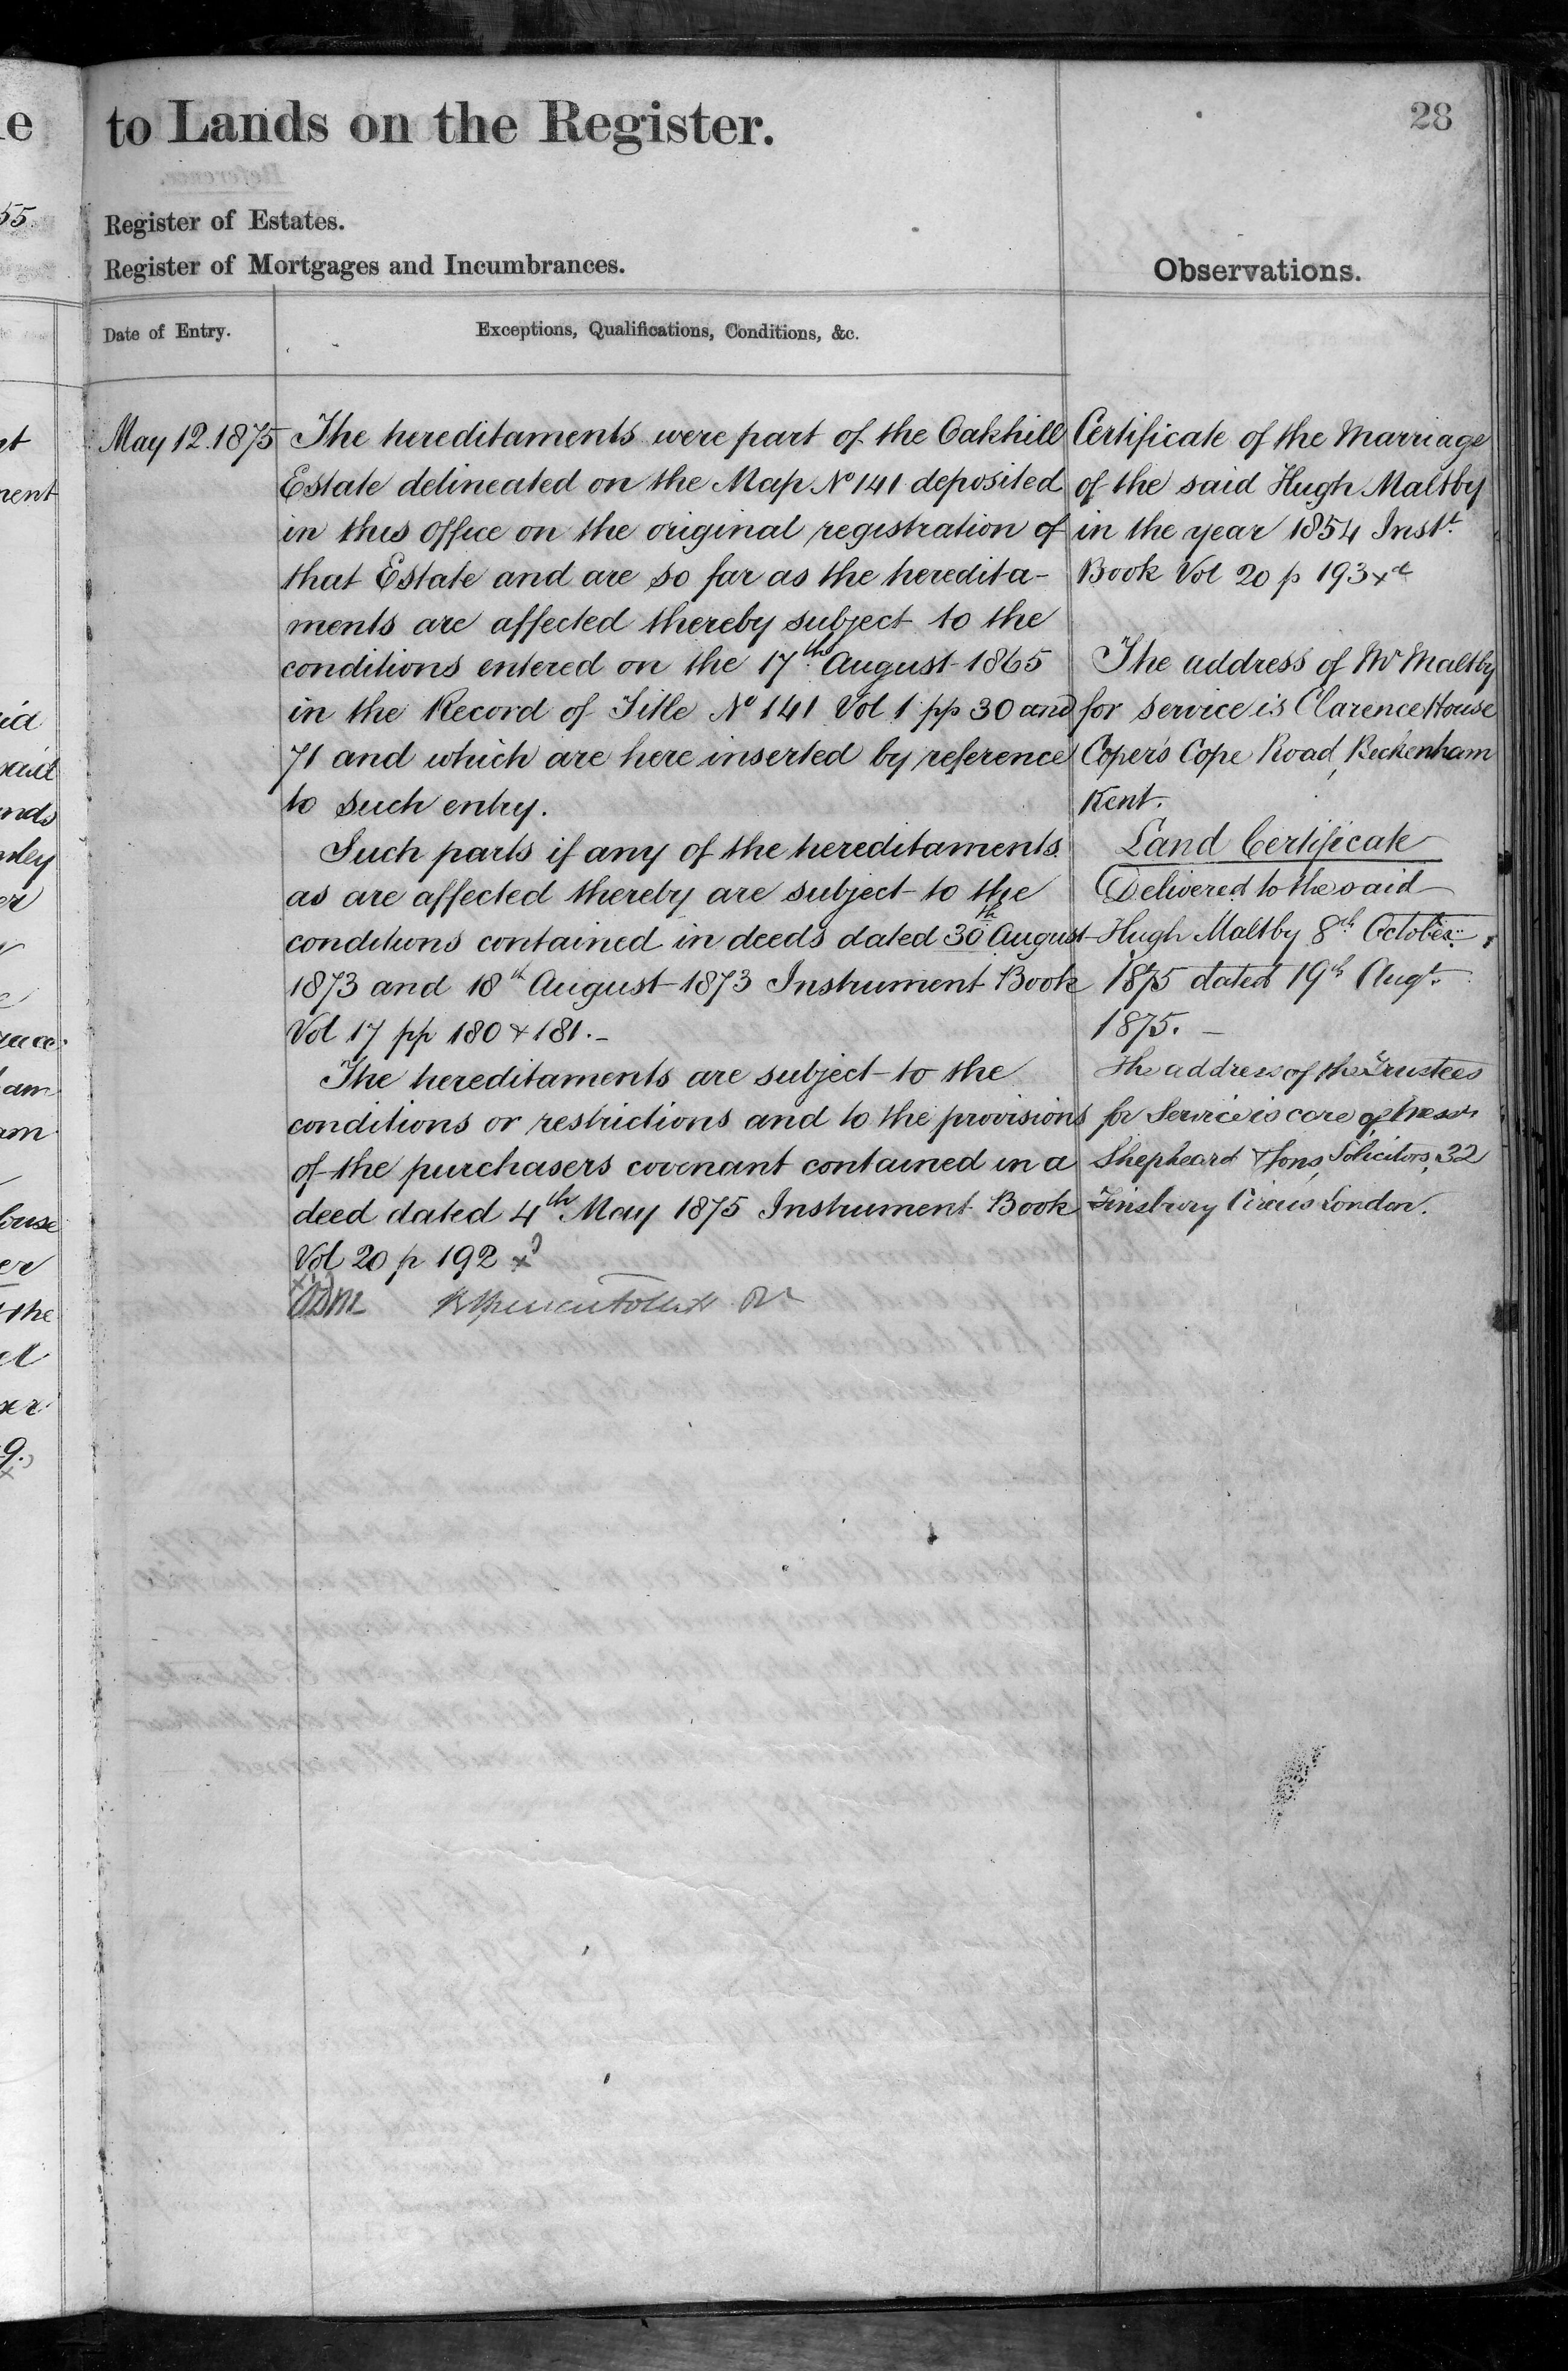 to Lands on the Register.
28
Register of Estates.
Register of Mortgages and Incumbrances.
Observations.
Date of Entry.
Exceptions, Qualifications, Conditions, &c.
May 12. 1875
The hereditaments were part of the Oakhill
Estate delineated on the Map No 141 deposited
in this Office on the original registration of
that Estate and are so far as the heredita-
ments are affected thereby subject to the
conditions entered on the 17th August 1865
in the Record of Title No 141 Vol 1 pp 30 and
71 and which are here inserted by reference
to such entry.
Such parts if any of the hereditaments
as are affected thereby are subject to the
conditions contained in deeds dated 30th August
1873 and 18th August 1873 Instrument Book
Vol 17 pp 180 & 181. -
The hereditaments are subject to the
conditions or restrictions and to the provisions
of the purchasers covenant contained in a
deed dated 4th May 1875 Instrument Book
Vol 20 p 192
Certificate of the Marriage
of the said Hugh Maltby
in the year 1854 Instt.
Book Vol 20 p 193
The address of Mr Maltby
for service is Clarence House
Coper's Cope Road, Beckenham
Kent.
Land Certificate
Delivered to the said
Hugh Maltby 8th October
1875 dated 19th Augt.
1875. -
The address of the Trustees
for Service is care of Messrs
Shepheard & Sons, Solicitors, 32
Finsbury Circus London.